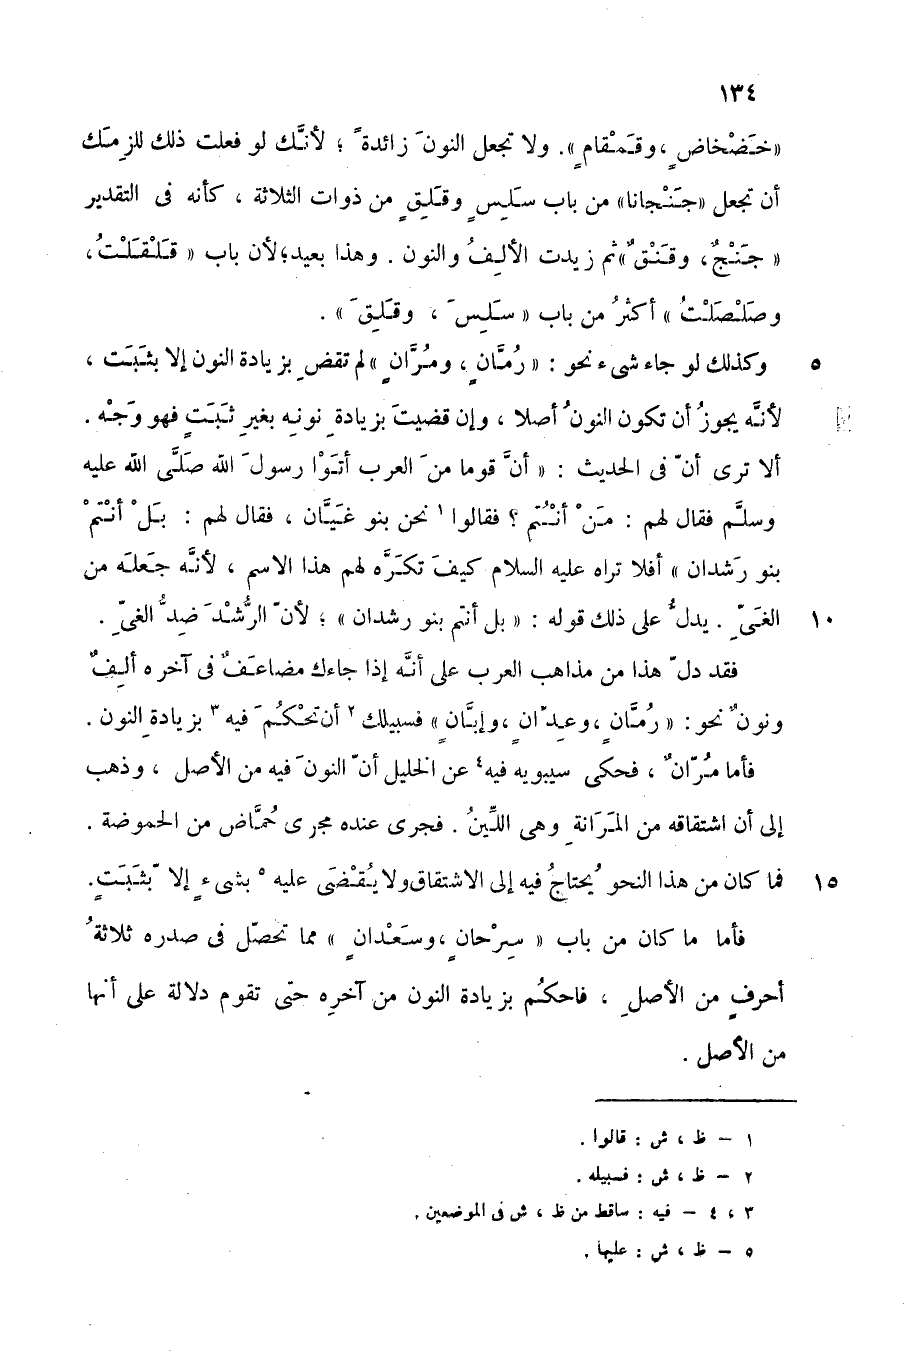 ١٣٤
«خَضْخاضٍ، وقَمْقامٍ». ولا تجعل النونَ زائدةً ؛ لأنَّك لو فعلت ذلك للزمك
أن تجعل «جَنْجانا» من باب سَلِسٍ وقَلِقٍ من ذوات الثلاثة ، كأنه فى التقدير
« جَنْجٌ، وقَنْقٌ» ثم زيدت الألِفُ والنون . وهذا بعيد؛ لأن باب « قَلْقَلْتُ،
وصَلْصَلْتُ » أكثرُ من باب « سَلِسَ ، وقَلِقَ » .
٥ وكذلك لو جاء شىء نحو : « رُمَّانٍ ، ومُرَّانٍ » لم تقضِ بزيادة النون إلا بثَبَت ،
لأنَّه يجوزُ أن تكون النونُ أصلا ، وإن قضيتَ بزيادةِ نونِه بغيرِ ثَبَتٍ فهو وَجْه .
ألا ترى أنّ فى الحديث : « أنَّ قوما منَ العرب أتَوْا رسولَ الله صَلَّى الله عليه
وسلَّم فقال لهم : مَنْ أنْتُم ؟ فقالوا ١ نحن بنو غَيَّان ، فقال لهم : بَلْ أنْتمْ
بنو رَشدان » أفلا تراه عليه السلام كيفَ تكَرَّه لهم هذا الاسم ، لأنَّه جَعلَه من
١٠ الغَىِّ . يدلُّ على ذلك قوله : « بل أنتم بنو رشدان » ؛ لأنّ الرُّشْدَ ضِدُّ الغىِّ .
فقد دلّ هذا من مذاهب العرب على أنَّه إذا جاءك مضاعَفٌ فى آخره ألِفٌ
ونونٌ نحو: « رُمَّانٍ ، وعِدّانٍ ، وإبَّانٍ » فسبيلك ٢ أن تحْكُمَ فيه ٣ بزيادةِ النون .
فأما مُرّانٌ ، فحكى سيبويه فيه٤ عن الخليل أنّ النونَ فيه من الأصل ، وذهب
إلى أن اشتقاقه من المَرَانةِ وهى اللِّينُ . فجرى عنده مجرى حُمَّاض من الحموضة .
١٥ فما كان من هذا النحو يُحتاجُ فيه إلى الاشتقاق ولا يُقْضَى عليه ٥ بشىءٍ إلا بثَبَتٍ.
فأما ما كان من باب « سِرْحانٍ ، وسَعْدانٍ » مما تحصّل فى صدره ثلاثةُ
أحرفٍ من الأصلِ ، فاحكُم بزيادة النون من آخرِه حتى تقوم دلالة على أنها
من الأصل .
١ – ظ ، ش : قالوا .
٢ – ظ ، ش : فسبيله .
٣ ، ٤ – فيه : ساقط من ظ ، ش فى الموضعين .
٥ – ظ ، ش : عليها .